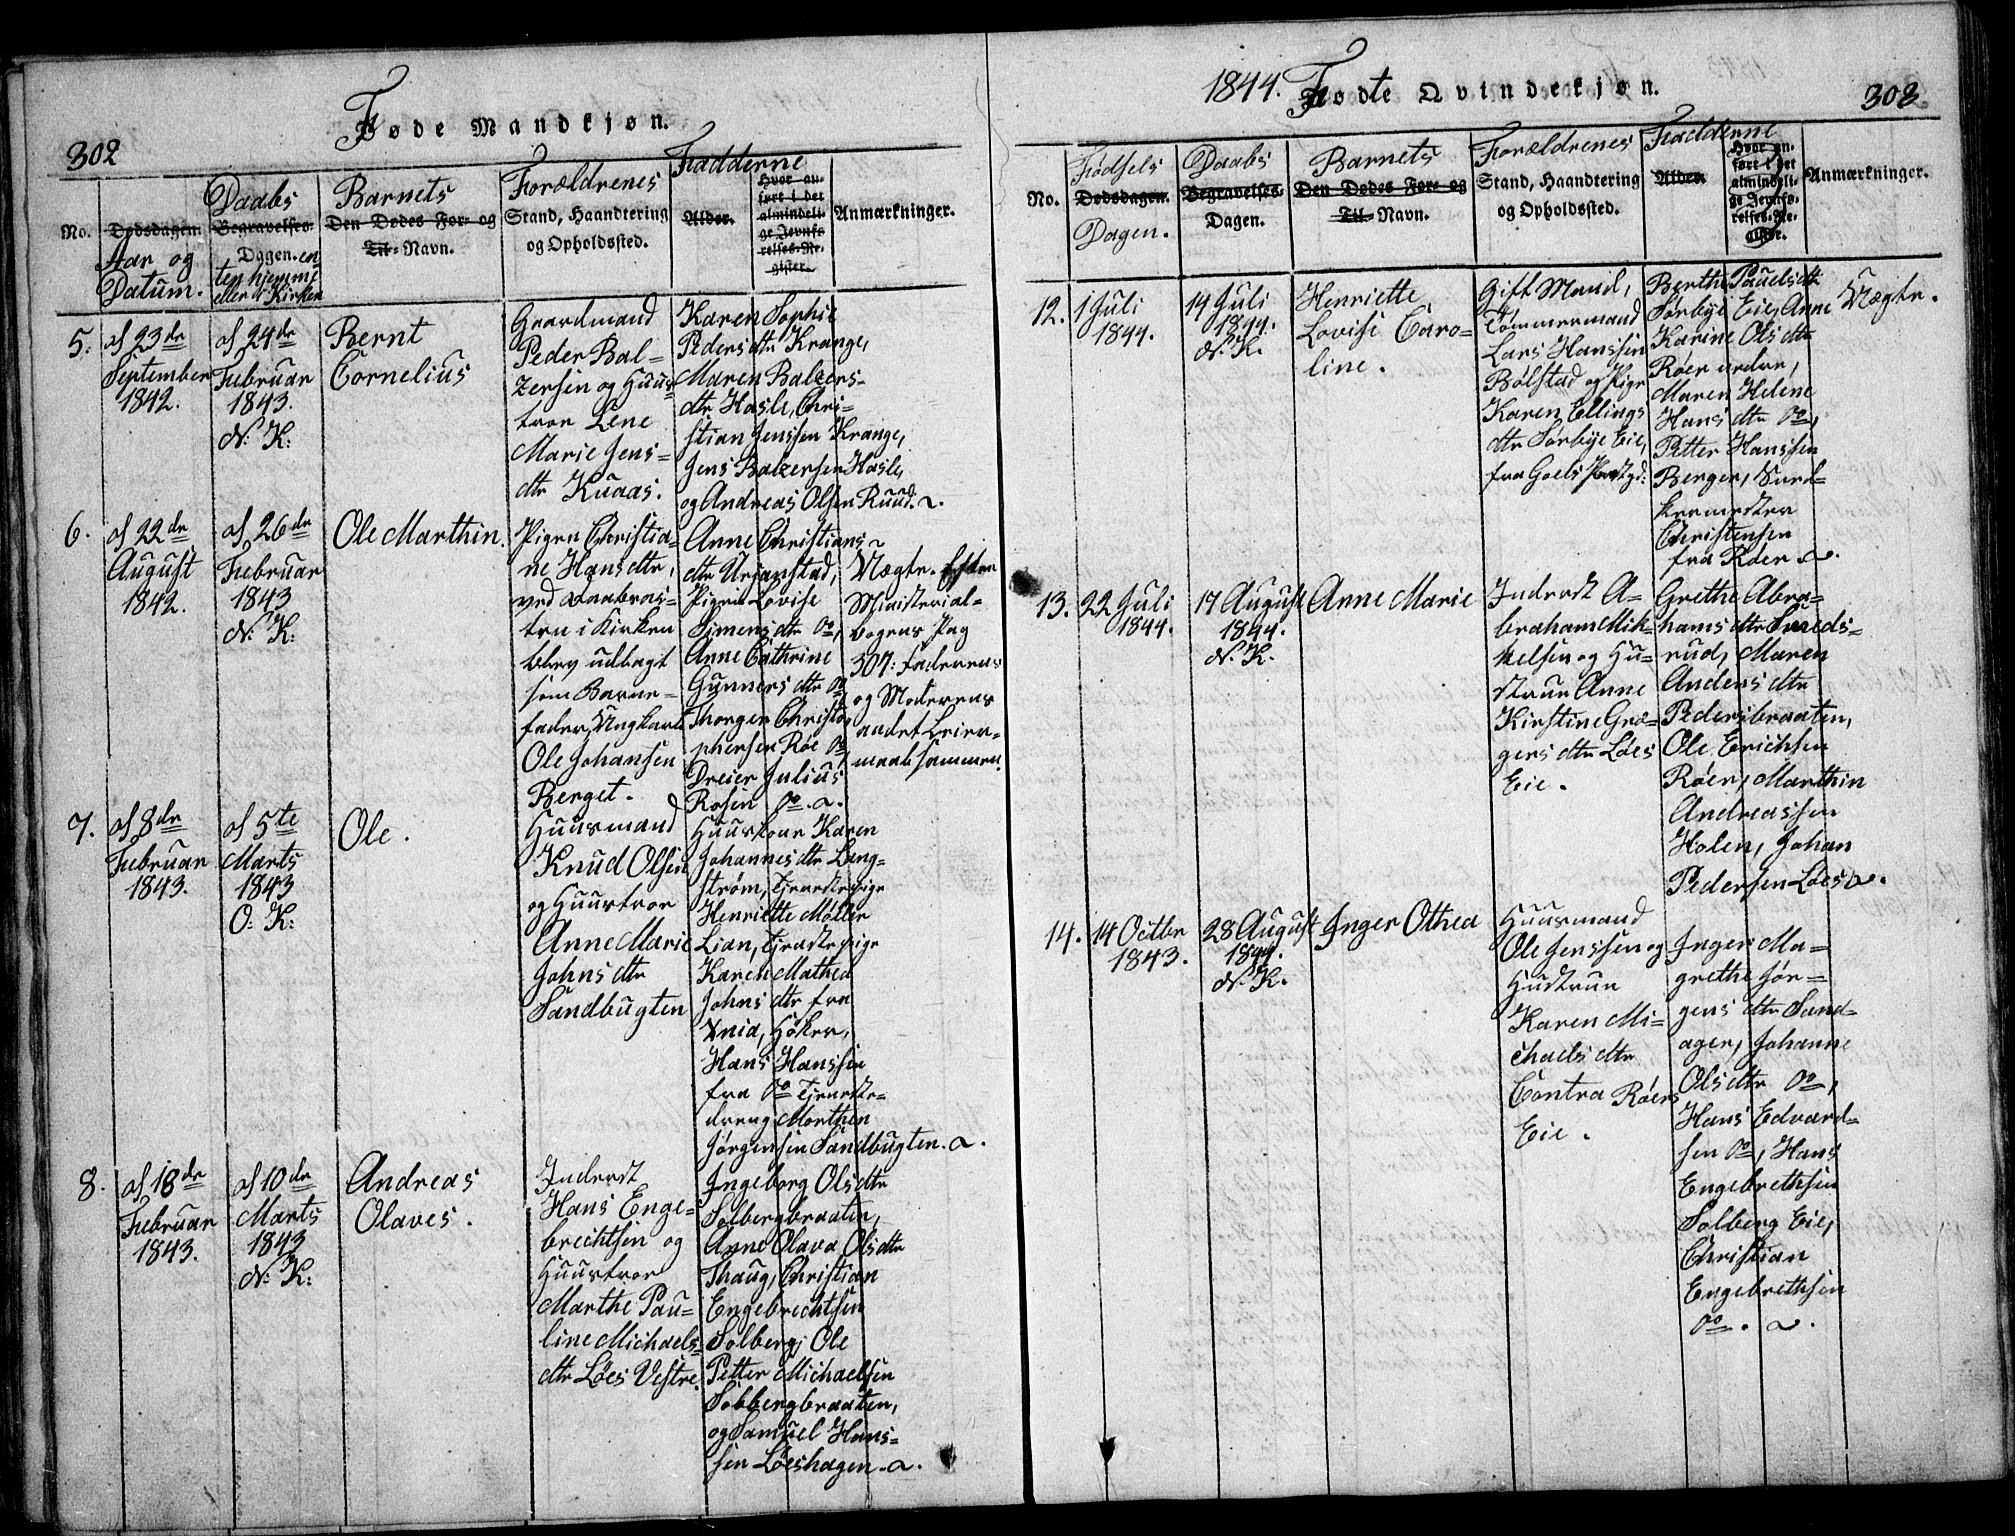 302
Føde Mandkjøn.
No.
Dødsdagen
Aar og
Datum.
Daabs
Begravelses-
Dagen. en-
ten hjemme
eller i Kirken
Barnets
Den Dødes For- og
Til- Navn.
Forældrenes
Stand, Haandtering
og Opholdssted.
Fadderne
Alder.
Hvor an-
ført i det
almindeli-
ge Jevnfø-
relses-Re-
gister.
Anmærkninger.
5.
d. 23de
September
1842.
d. 24de
Februar
1843.
N. K:
Bernt
Cornelius
Gaardmand
Peder Bal-
zersen og Huus-
troe Lene
Marie Jens-
dtr Knaas.
Karen Sophie
Pedersdtr Krange,
Maren Balzers-
dtr Hasle, Chri-
stian Jenssen Krange,
Jens Balzersen Hasle,
og Andreas Olsen Ruud. a.
6.
d. 22de
August
1842.
d. 26de
Februar
1843
N: K:
Ole Marthin.
Pigen Christia-
ne Hansdtr,
ved Daabens-
ten i Kirken
blev udlagt
som Barne-
fader, Ungkarl
Ole Johansen
Berget.
Anne Christians-
dtr Urjanstad,
Pigen Lovise
Simensdtr do,
Anne Cathrine
Gunnersdtr do
Thorger Christo-
phersen Røe do,
Dreier Julius
Rosen do. a.
Nægte. Efter
Ministerial-
bogens Pag
307: Faderens
og Moderens
andet Leier-
maal sammen.
7.
d. 8de
Februar
1843.
d. 5te
Marts
1843
O. K:
Ole.
Huusmand
Knud Olsen
og Huustroe
Anne Marie
Johnsdtr
Sandbugten
Huustroe Karen
Johannesdtr Lang-
strøm, Tjenestepige
Henriette Møller
Lian, Tjenestepige
Karen Mathea
Johnsdtr fra
Høker,
Hans Hanssen
fra do Tjeneste-
dreng Morthen
Jørgensen Sandbugten. a.
8.
d. 18de
Februar
1843.
d. 10de
Marts
1843
N: K:
Andreas
Olaves.
Inderst
Hans Enge-
brechtsen og
Huustroe
Marthe Pau-
line Michaels-
dtr Løes Vestre.
Ingeborg Olsdtr
Solbergbraaten,
Anne Olava Olsdtr
Thaug, Christian
Engebrechtsen
Solberg, Ole
Petter Michaelsen
Solbergbraaten,
og Samuel Hans-
sen Løeshagen. a.
1844. Fødte Qvindekjøn.
303
No.
Fødsels
Dødsdagen.
Dagen.
Daabs
Begravelses-
Dagen.
Barnets
Den Dødes Fore- og
Til- Navn.
Forældrenes
Stand, Haandtering
og Opholdssted.
Fadderne
Alder.
Hvor an-
ført i det
almindeli-
ge Jevnfø-
relses-Re-
gister.
Anmærkninger.
12.
1 Juli
1844.
14 Juli
1844.
N. K.
Henriette
Lovise Caro-
line.
Gift Mand,
Tømmermand
Lars Hanssen
Bølstad og Pige
Karen Ellings
dtr Sørbye Eie,
fra Præstgd:
Berthe Paulsdtr
Sørbye Eie, Anne
Karine Olsdtr
Røer nedre,
Maren Helene
Hansdtr do,
Petter Hanssen
Berger,
Christensen
fra Røer a.
Nægte.
13.
22 Juli
1844.
17 August
1844.
N. K.
Anne Marie
Inderst A-
braham Mik-
kelsen og Hu-
strue Anne
Kirstine Gre-
gersdtr Løes
Eie.
Grethe Abra-
hamsdtr Sneds-
rud, Maren
Andersdtr
Pedersbraaten,
Ole Erichsen
Røer, Marthin
Andreassen
Holen, Johan
Pedersen Løes a.
14.
14 Octbr
1843.
28 August
1844.
N. K.
Inger Othea
Huusmand
Ole Jenssen og
Hustrue
Karen Mi-
chaelsdtr
Contra Røers
Eie.
Inger Ma-
grethe Jør-
gensdtr Sand-
ager, Johanne
Olsdtr do,
Hans Edvard-
sen do, Hans
Engebrethsen
Solberg Eie,
Christian
Engebrethsen
do. a.